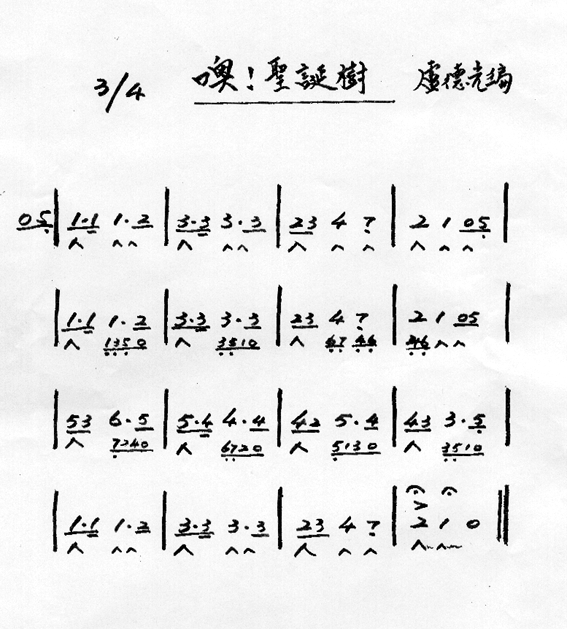 3/4 噢!聖誕樹 盧德堯編
05 | 1·1 1·2 | 3·3 3·3 | 23 4 7 | 2 1 05 |
| 1·1 1·2 | 3·3 3·3 | 23 4 7 | 2 1 05 |
1350 3510 67 46 46
| 53 6·5 | 5·4 4·4 | 42 5·4 | 43 3·5 |
7240 6720 5130 3510
| 1·1 1·2 | 3·3 3·3 | 23 4 7 | 2 1 0 ||